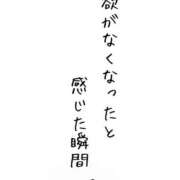 欲がなくなったと
感じた瞬間